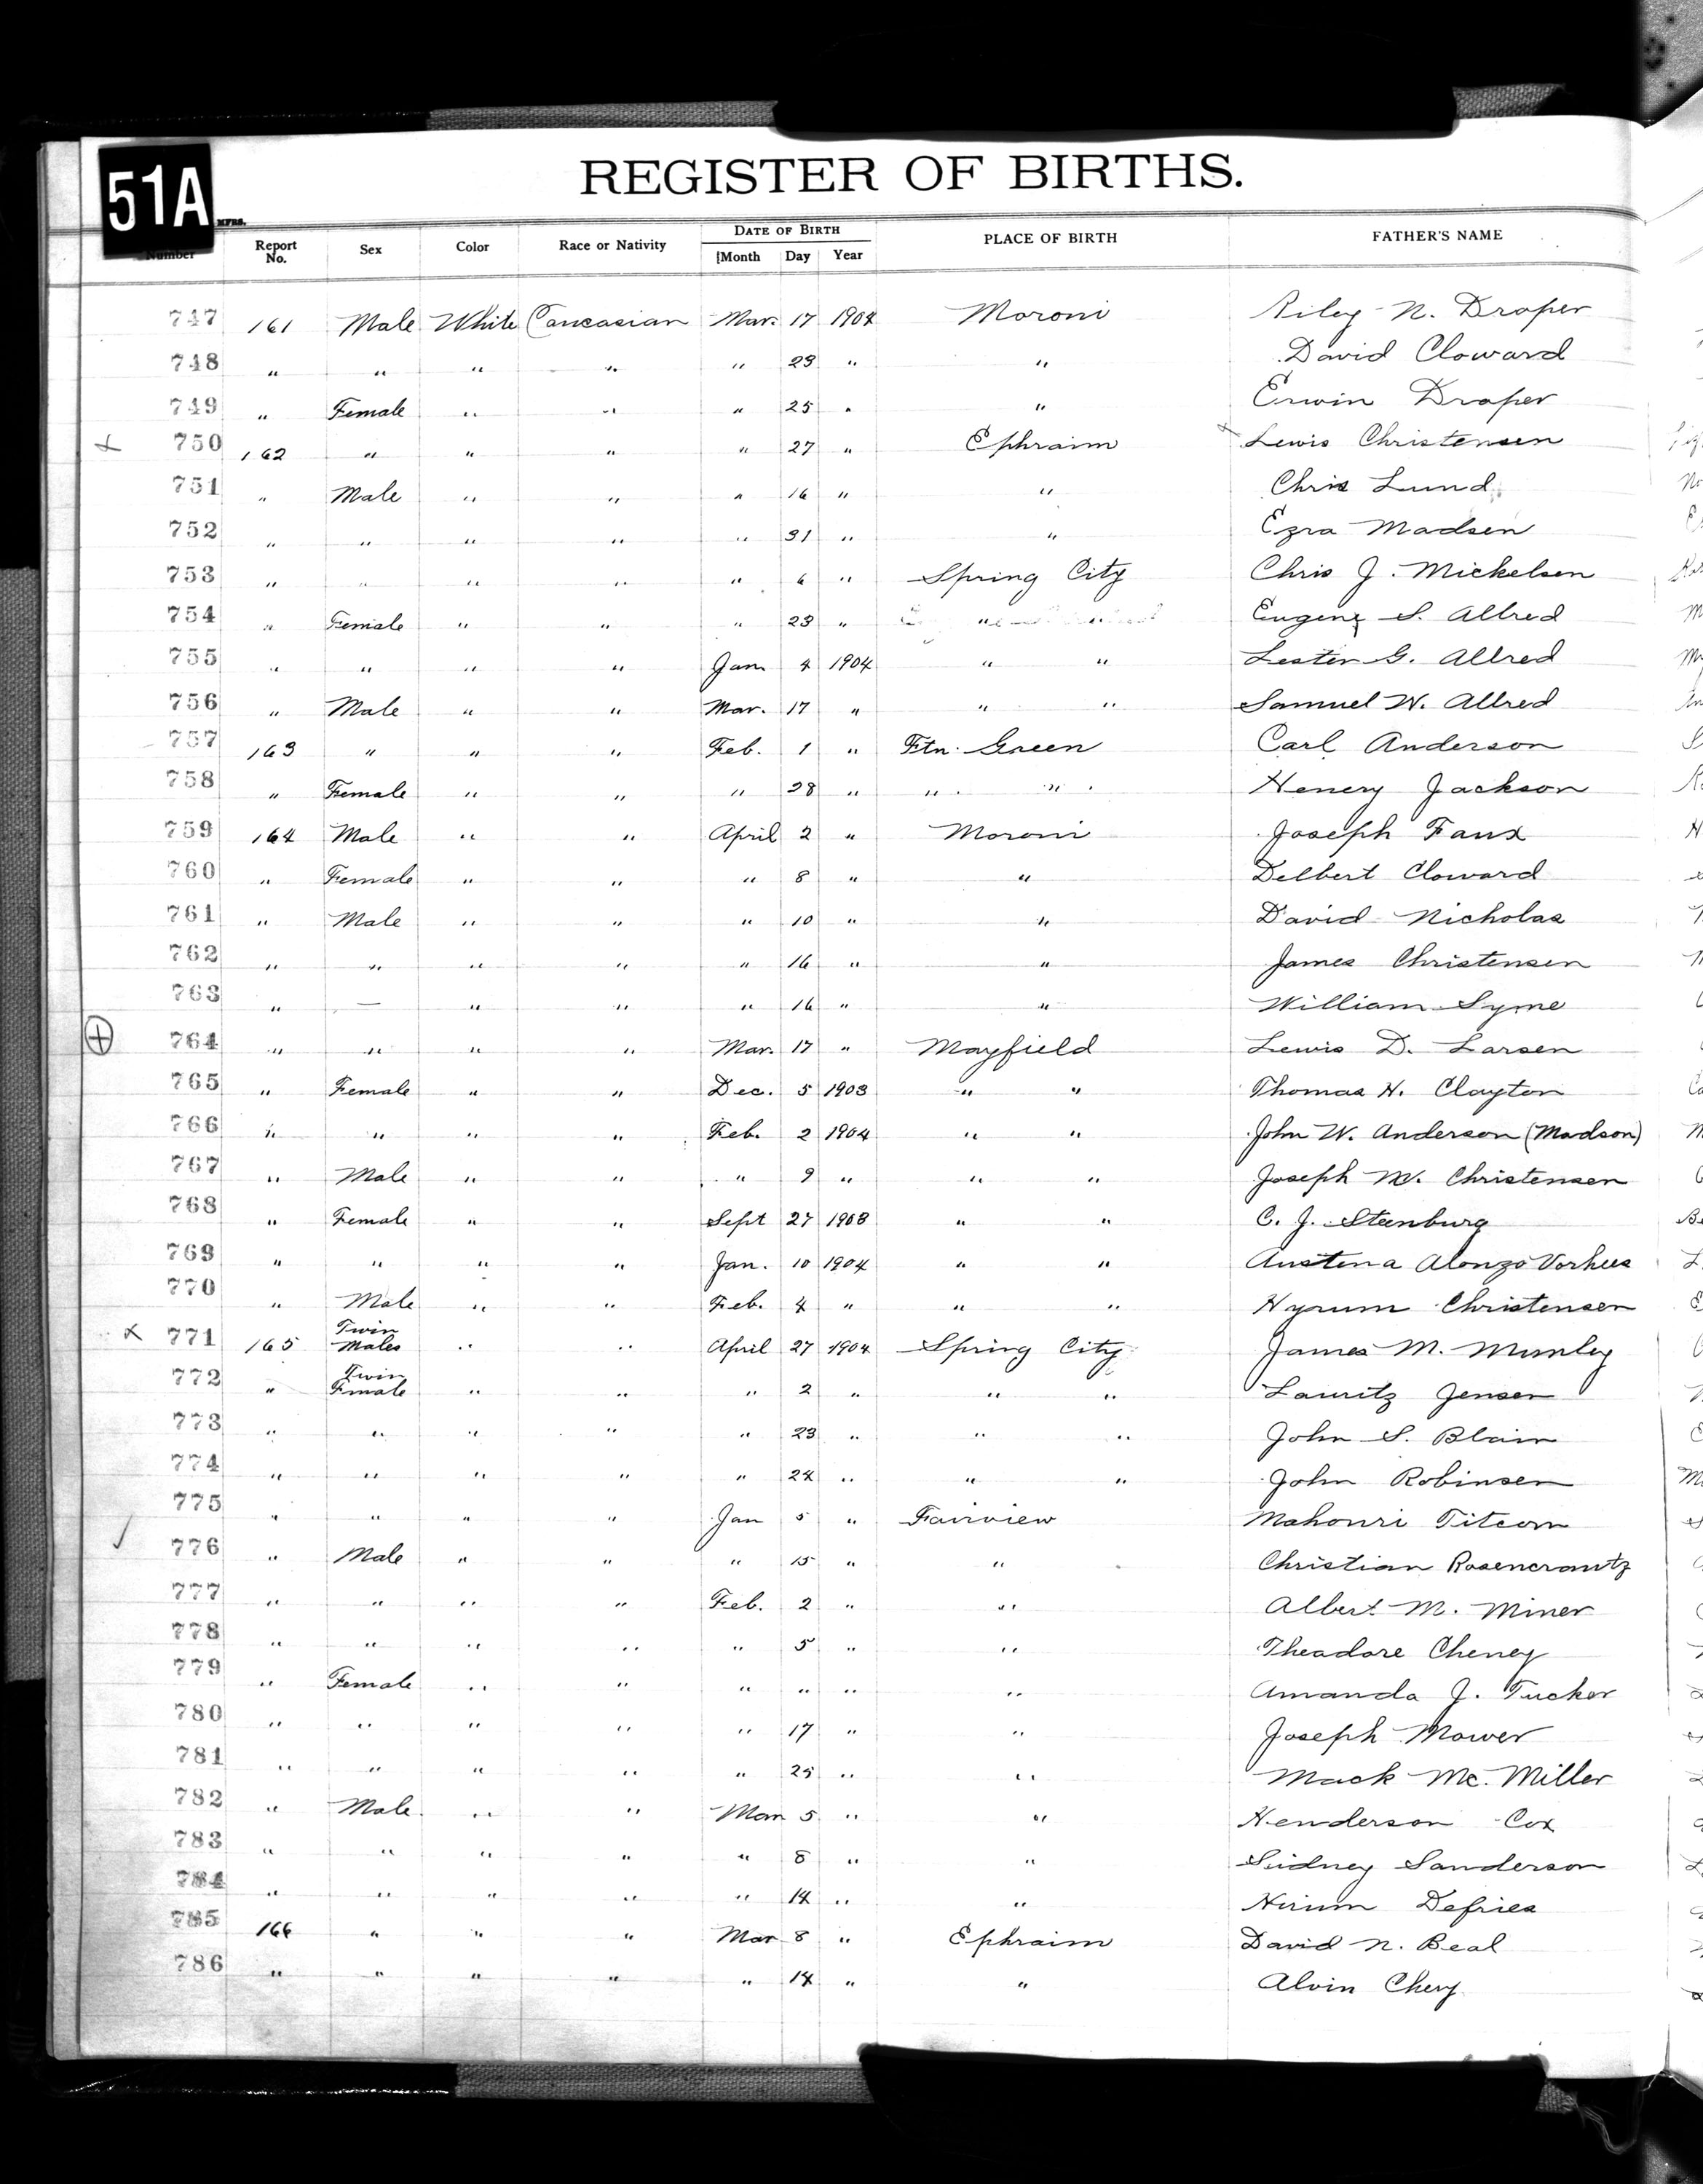 51A
REGISTER OF BIRTHS.
MFRS.
Number Report No. Sex Color Race or Nativity DATE OF BIRTH Month Day Year PLACE OF BIRTH FATHER'S NAME
747 161 Male White Caucasian Mar. 17 1904 Moroni Riley N. Draper
748 " " " " " 23 " " David Cloward
749 " Female " " " 25 " " Erwin Draper
750 162 " " " " 27 " Ephraim Lewis Christensen
751 " Male " " " 16 " " Chris Lund
752 " " " " " 31 " " Ezra Madsen
753 " " " " " 6 " Spring City Chris J. Mickelsen
754 " Female " " " 23 " " " Eugene S. Allred
755 " " " " Jan 4 1904 " " Lester G. Allred
756 " Male " " Mar. 17 " " " Samuel W. Allred
757 163 " " " Feb. 1 " Ftn. Green Carl Anderson
758 " Female " " " 28 " " " Henery Jackson
759 164 Male " " April 2 " Moroni Joseph Faux
760 " Female " " " 8 " " Delbert Cloward
761 " Male " " " 10 " " David Nicholas
762 " " " " " 16 " " James Christensen
763 " — " " " 16 " " William Syme
764 " " " " Mar. 17 " Mayfield Lewis D. Larsen
765 " Female " " Dec. 5 1903 " " Thomas H. Clayton
766 " " " " Feb. 2 1904 " " John W. Anderson (Madson)
767 " Male " " " 9 " " " Joseph M. Christensen
768 " Female " " Sept 27 1903 " " C. J. Steenburg
769 " " " " Jan. 10 1904 " " Austena Alonzo Vorhees
770 " Male " " Feb. 4 " " " Hyrum Christensen
771 165 Twin Males " " April 27 1904 Spring City James M. Munley
772 " Twin Female " " " 2 " " " Lauritz Jensen
773 " " " " " 23 " " " John S. Blain
774 " " " " " 24 " " " John Robinsen
775 " " " " Jan 5 " Fairview Mahonri Titcom
776 " Male " " " 15 " " Christian Rosencrantz
777 " " " " Feb. 2 " " Albert M. Miner
778 " " " " " 5 " " Theadore Cheney
779 " Female " " " " " " Amanda J. Tucker
780 " " " " " 17 " " Joseph Mower
781 " " " " " 25 " " Mack Mc. Miller
782 " Male " " Mar 5 " " Henderson Cox
783 " " " " " 8 " " Sidney Sanderson
784 " " " " " 14 " " Hirum Defries
785 166 " " " Mar 8 " Ephraim David N. Beal
786 " " " " " 14 " " Alvin Chery